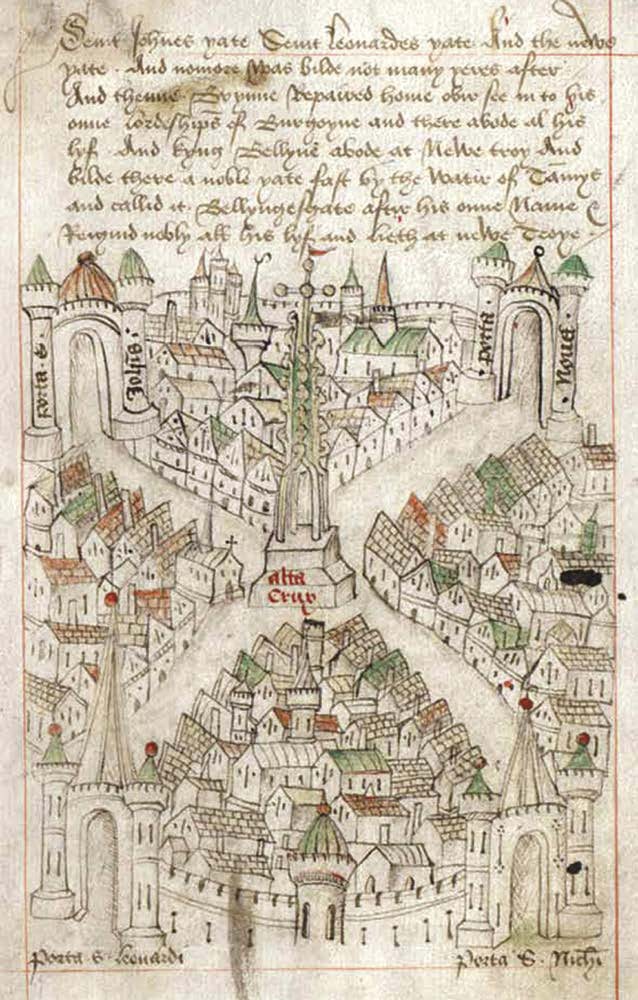 Seint Johnes yate Seint Leonardes yate. And the newe
yate. And nomore was bilde not many yeres after
And thenne Brynne Repaired home ovir see in to his
onne lordeships of Burgoyne and there abode al his
lyf. And kyng Bellyne abode at Newe troy And
bilde there a noble yate fast by the Watir of Tamys
and callid it. Bellyngesgate aftir his onne Name &
Reignid nobly all his lyf and lieth at newe Troye
porta S. Joħis.
porta Noua.
alta
Crux
porta S. Leonardi
porta S. Nichi